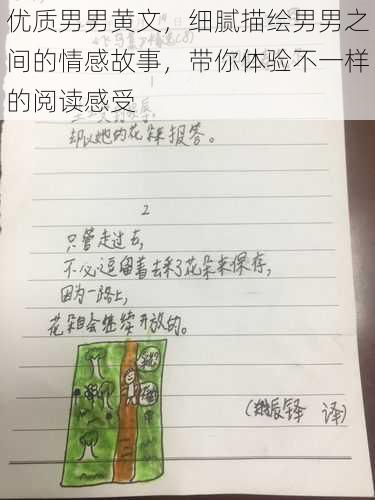 优质男男黄文，细腻描绘男男之
间的情感故事，带你体验不一样
的阅读感受
却以她的花朵来报答。
2
只管走过去，
不必逗留着去采了花朵来保存，
因为一路上，
花朵自会继续开放的。
(郑振铎 译)